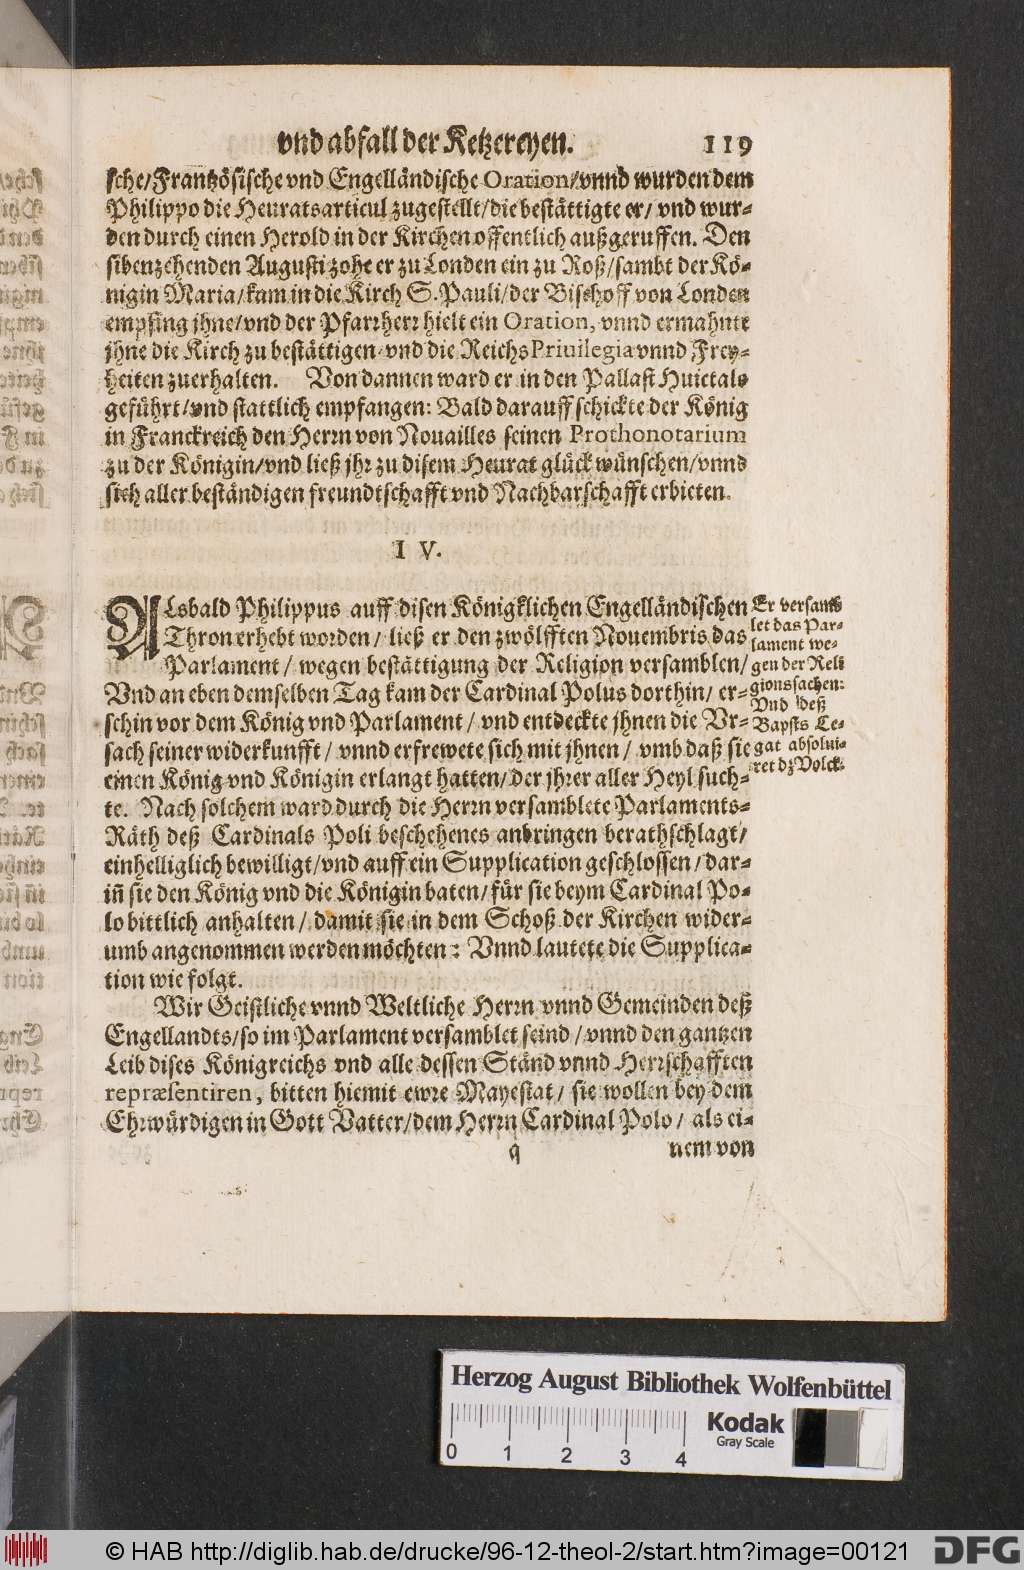 vnd abfall der Ketzereyen. 119
sche/Frantzösische vnd Engelländische Oration/vnnd wurden dem
Philippo die Heuratsarticul zugestellt/die bestättigte er/ vnd wur-
den durch einen Herold in der Kirchen offentlich außgeruffen. Den
sibenzehenden Augusti zohe er zu Londen ein zu Roß/sambt der Kö-
nigin Maria/kam in die Kirch S. Pauli/der Bischoff von Londen
empfing jhne/vnd der Pfarrherr hielt ein Oration, vnnd ermahnte
jhne die Kirch zu bestättigen vnd die Reichs Priuilegia vnnd Frey-
heiten zuerhalten. Von dannen ward er in den Pallast Huictals
geführt/vnd stattlich empfangen: Bald darauff schickte der König
in Franckreich den Herrn von Nouailles seinen Prothonotarium
zu der Königin/vnd ließ jhr zu disem Heurat glück wünschen/vnnd
sich aller beständigen freundtschafft vnd Nachbarschafft erbieten.
I V.
ALsbald Philippus auff disen Königklichen Engelländischen
Thron erhebt worden/ ließ er den zwölfften Nouembris das
Parlament/ wegen bestättigung der Religion versamblen/
Vnd an eben demselben Tag kam der Cardinal Polus dorthin/ er-
schin vor dem König vnd Parlament/ vnd entdeckte jhnen die Vr-
sach seiner widerkunfft/ vnnd erfrewete sich mit jhnen/ vmb daß sie
einen König vnd Königin erlangt hatten/der jhrer aller Heyl such-
te. Nach solchem ward durch die Herrn versamblete Parlaments-
Räth deß Cardinals Poli beschehenes anbringen berathschlagt/
einhelliglich bewilligt/vnd auff ein Supplication geschlossen/dar-
iñ sie den König vnd die Königin baten/für sie beym Cardinal Po-
lo bittlich anhalten/ damit sie in dem Schoß der Kirchen wider-
umb angenommen werden möchten: Vnnd lautete die Supplica-
tion wie folgt.
Wir Geistliche vnnd Weltliche Herrn vnnd Gemeinden deß
Engellandts/so im Parlament versamblet seind/vnnd den gantzen
Leib dises Königreichs vnd alle dessen Ständ vnnd Herrschafften
repræsentiren, bitten hiemit ewre Mayestat/ sie wollen bey dem
Ehrwürdigen in Gott Vatter/dem Herrn Cardinal Polo/ als ei-
q nem von
Er versamb
let das Par-
lament we-
gen der Reli
gionssachen:
Vnd deß
Bapsts Le-
gat absolui-
ret dz Volck.
Herzog August Bibliothek Wolfenbüttel
0 1 2 3 4
Kodak
Gray Scale
© HAB http://diglib.hab.de/drucke/96-12-theol-2/start.htm?image=00121
DFG